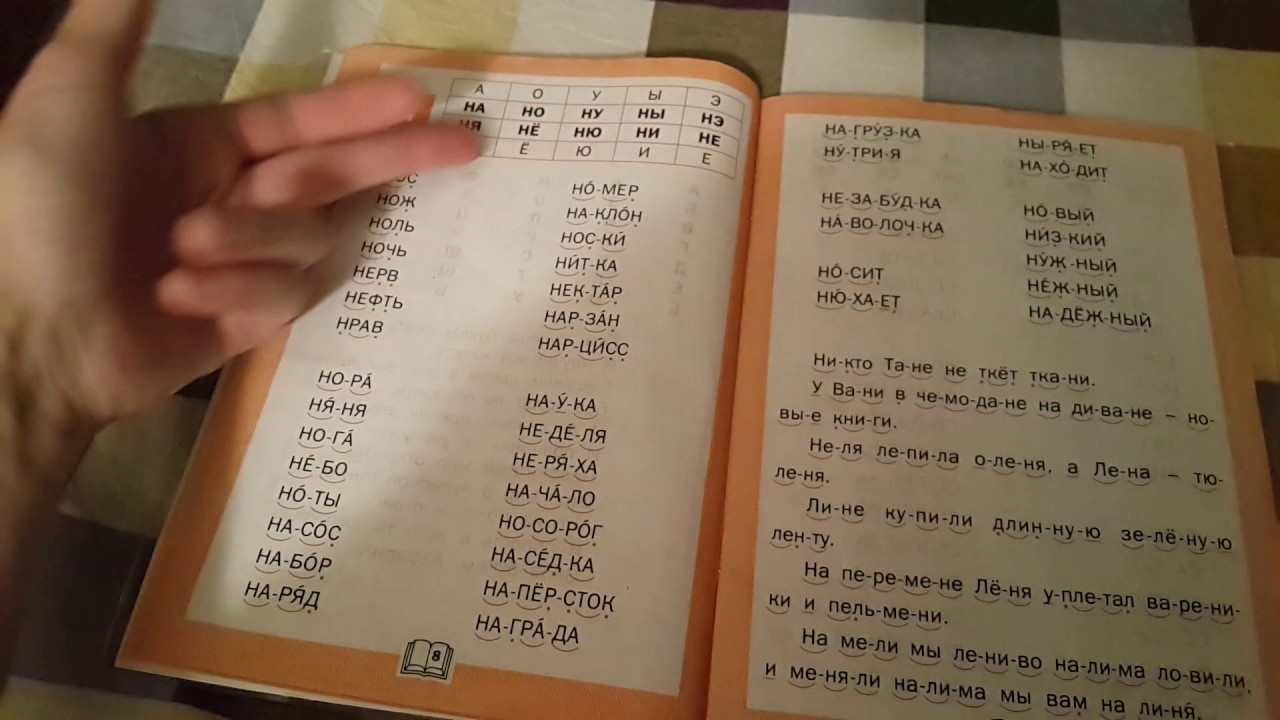 А О У Ы Э
НА НО НУ НЫ НЭ
НЯ НЁ НЮ НИ НЕ
Ё Ю И Е
НОЖ
НОЛЬ
НОЧЬ
НЕРВ
НЕФТЬ
НРАВ
НО́-МЕР
НА-КЛО́Н
НОС-КИ́
НИ́Т-КА
НЕК-ТА́Р
НАР-ЗА́Н
НАР-ЦИ́СС
НО-РА́
НЯ́-НЯ
НО-ГА́
НЕ́-БО
НО́-ТЫ
НА-СО́С
НА-БО́Р
НА-РЯ́Д
НА-У́-КА
НЕ-ДЕ́-ЛЯ
НЕ-РЯ́-ХА
НА-ЧА́-ЛО
НО-СО-РО́Г
НА-СЕ́Д-КА
НА-ПЁР-СТОК
НА-ГРА́-ДА
8
НА-ГРУ́З-КА
НУ́-ТРИ-Я
НЫ-РЯ́-ЕТ
НА-ХО́-ДИТ
НЕ-ЗА-БУ́Д-КА
НА́-ВО-ЛОЧ-КА
НО́-СИТ
НЮ́-ХА-ЕТ
НО́-ВЫЙ
НИ́З-КИЙ
НУ́Ж-НЫЙ
НЕ́Ж-НЫЙ
НА-ДЁЖ-НЫЙ
Ни-кто Та-не не ткёт тка-ни.
У Ва-ни в че-мо-да-не на ди-ва-не – но-
вы-е кни-ги.
Не-ля ле-пи-ла о-ле-ня, а Ле-на – тю-
ле-ня.
Ли-не ку-пи-ли длин-ну-ю зе-лё-ну-ю
лен-ту.
На пе-ре-ме-не Лё-ня у-пле-тал ва-ре-ни-
ки и пель-ме-ни.
На ме-ли мы ле-ни-во на-ли-ма ло-ви-ли,
и ме-ня-ли на-ли-ма мы вам на ли-ня́.